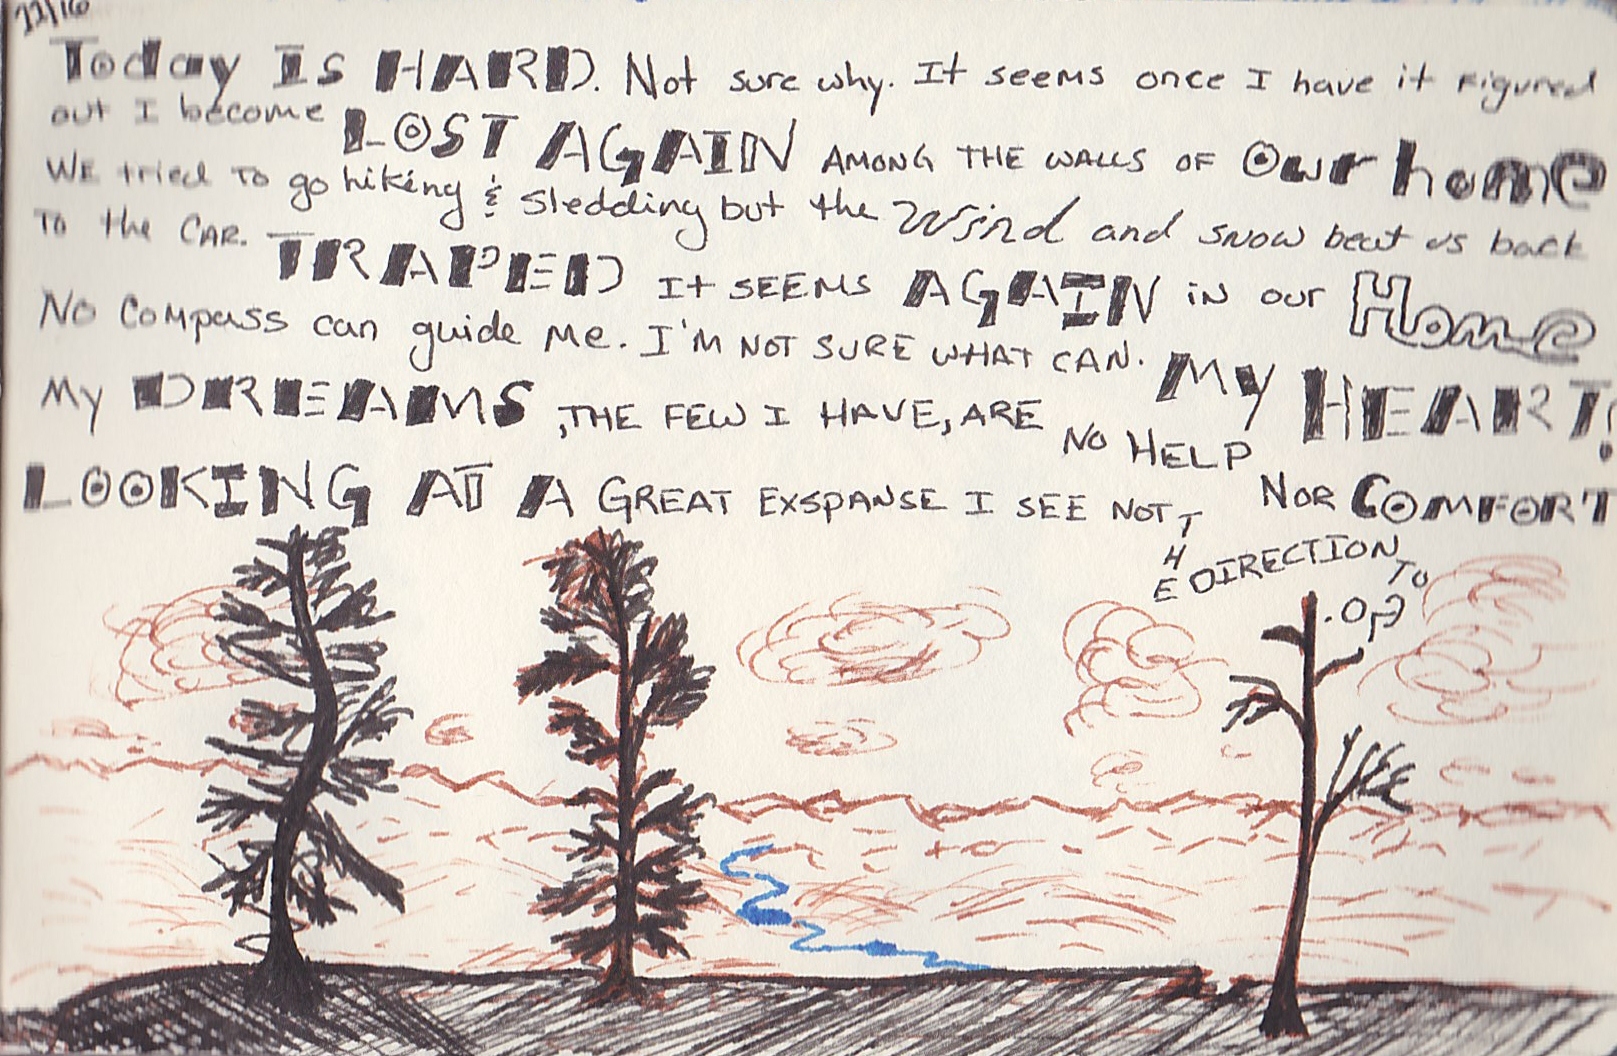 22/16
Today IS HARD. Not sure why. It seems once I have it figured
out I become LOST AGAIN AMONG THE WALLS OF Our home
WE tried TO go hiking & sledding but the Wind and snow beat us back
TO the CAR. TRAPED It SEEMS AGAIN iN our Home
No Compass can guide Me. I'M NOT SURE WHAT CAN. My HEART!
My DREAMS, THE FEW I HAVE, ARE NO HELP NOR COMFORT
LOOKING AT A GREAT EXSPANSE I SEE NOT THE DIRECTION TO GO.